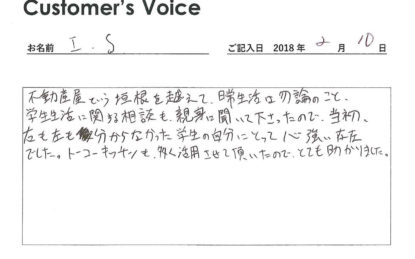 Customer's Voice
お名前 I.S ご記入日 2018年2月10日
不動産屋という垣根を越えて、日常生活は勿論のこと、
学生生活に関する相談も、親身に聞いて下さったので、当初、
右も左も分からなかった学生の自分にとって心強い存在
でした。トーコーキッチンも、多く活用させて頂いたので、とても助かりました。